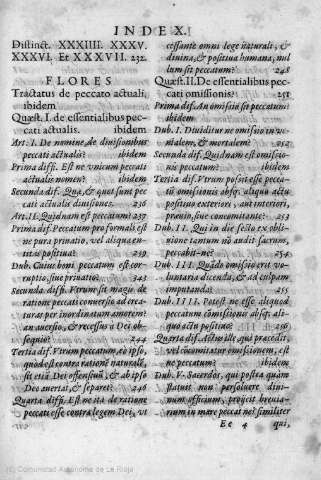 INDEX.
Distinct. XXXIIII. XXXV.
XXXVI. Et XXXVII. 232.
FLORES
Tractatus de peccato actuali,
ibidem
Quæst. I. de essentialibus pec-
cati actualis. ibidem
Art. I. De nomine, de diuisionibus
peccati actualis? ibidem
Prima diffi. Est ne vnicum peccati
actualis nomen? ibidem
Secunda dif. Quæ, & quot sunt pec
cati actualis diuisiones. 236
Art. II. Quidnam est peccatum? 237
Prima dif. Peccatum pro formali est
ne pura priuatio, vel aliqua en-
titas positiua? 239
Dub. Cuius boni peccatum est cor-
ruptio, siue priuatio? 242
Secunda diffi. Vtrum sit magis de
ratione peccati conuersio ad crea-
turas per inordinatum amorem?
an auersio, & recessus a Dei ob-
sequio? 244
Tertia dif. Vtrum peccatum, eo ipso,
quòd est contra rationē naturalē,
sit etiā Dei offensiuū, & ab ipso
Deo auertat, & separet? 246
Quarta diffi. Est ne ita de ratione
peccati esse contra legem Dei, vt
cessante omni lege naturali, &
diuina, & positiua humana, nul
lum sit peccatum? 248
Quæst. II. De essentialibus pec
cati omissionis? 251
Prima dif. An omissio sit peccatum?
ibidem
Dub. I. Diuiditur ne omissio in ve-
nialem, & mortalem? 252
Secunda dif. Quidnam est omissio-
nis peccatum? ibidem
Tertia dif. Vtrū possit esse pecca-
tū omissionis absq; aliquo actu
positiuo exteriori, aut interiori,
præuio, siue concomitante? 253
Dub. II. Qui in die festo ex obli-
uione tantum nō audit sacrum,
peccabit-ne? 254
Dub. III. Quādo omissio erit vo-
luntaria dicenda, & ad culpam
imputanda? 255
Dub. IIII. Potest ne esse aliquod
peccatum cōmissionis absq; ali-
quo actu positiuo? 256
Quarta dif. Actus ille, qui præcedit,
vel comitatur omissionem, est
ne peccatum? ibidem
Dub. V. Sacerdos, qui postquam
statuit non persoluere diui-
num officium, proijcit breuia-
rium in mare peccat nè similiter
Ee 4 qui,
(C) Comunidad Autónoma de La Rioja